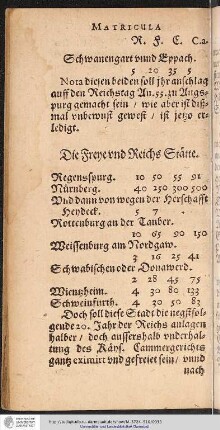 MATRICULA
R. F. C. C.a.
Schwanengart vnnd Eppach.
5 20 35 5
Nota diesen beiden soll jhr anschlag
auff den Reichstag An. 55. zu Augs-
purg gemacht sein / wie aber ist diß-
mal vnbewust gewest / ist jetzo er-
ledigt.
Die Freye vnd Reichs Stätte.
Regenspurg. 10 50 55 91
Nürnberg. 40 250 300 500
Vnd dann von wegen der Herschafft
Heydeck. 5
Rottenburg an der Tauber.
10 65 90 150
Weissenburg am Nordgaw.
3 16 25 41
Schwäbischen oder Donawerd.
2 28 45 75
Wientzheim. 4 30 80 133
Schweinfurth. 4 30 50 83
Doch soll diese Stadt die negstfol-
gende 20. Jahr der Reichs anlagen
halber / doch ausserhalb vnderhal-
tung des Käys. Cammergerichts
gantz eximirt vnd gefreiet sein / vnnd
nach